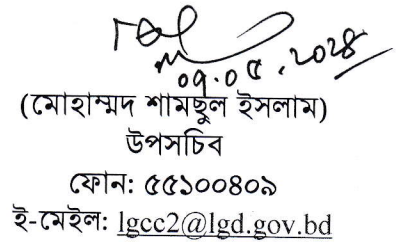 ০৭.০৫.২০২৪
(মোহাম্মদ শামছুল ইসলাম)
উপসচিব
ফোন: ৫৫১০০৪০৯
ই-মেইল: lgcc2@lgd.gov.bd